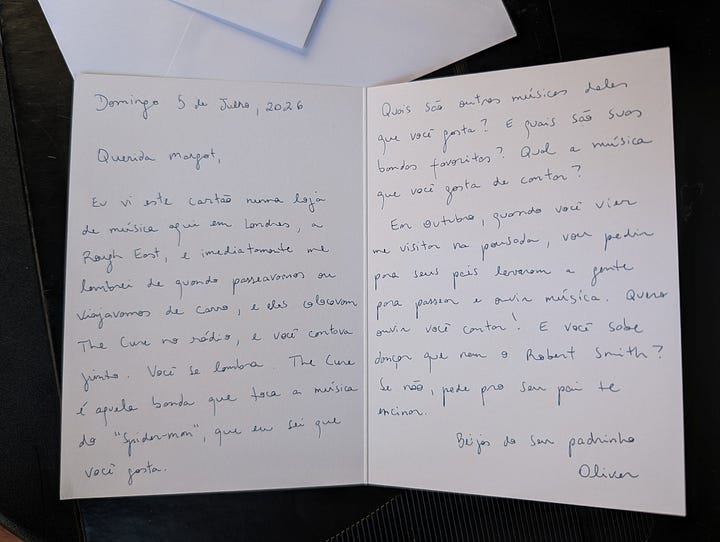 Domingo 5 de Julho, 2026
Querida Margot,
Eu vi este cartão numa loja
de música aqui em Londres, a
Rough East, e imediatamente me
lembrei de quando passeávamos ou
viajávamos de carro, e eles colocavam
The Cure no rádio, e você cantava
junto. Você se lembra. The Cure
é aquela banda que toca a música
do "Spider-man", que eu sei que
você gosta.
Quais são outras músicas deles
que você gosta? E quais são suas
bandas favoritas? Qual a música
que você gosta de cantar?
Em outubro, quando você vier
me visitar na pousada, vou pedir
pra seus pais levarem a gente
para passear e ouvir música. Quero
ouvir você cantar! E você sabe
dançar que nem o Robert Smith?
Se não, pede pro seu pai te
ensinar.
Beijos do seu padrinho
Oliver